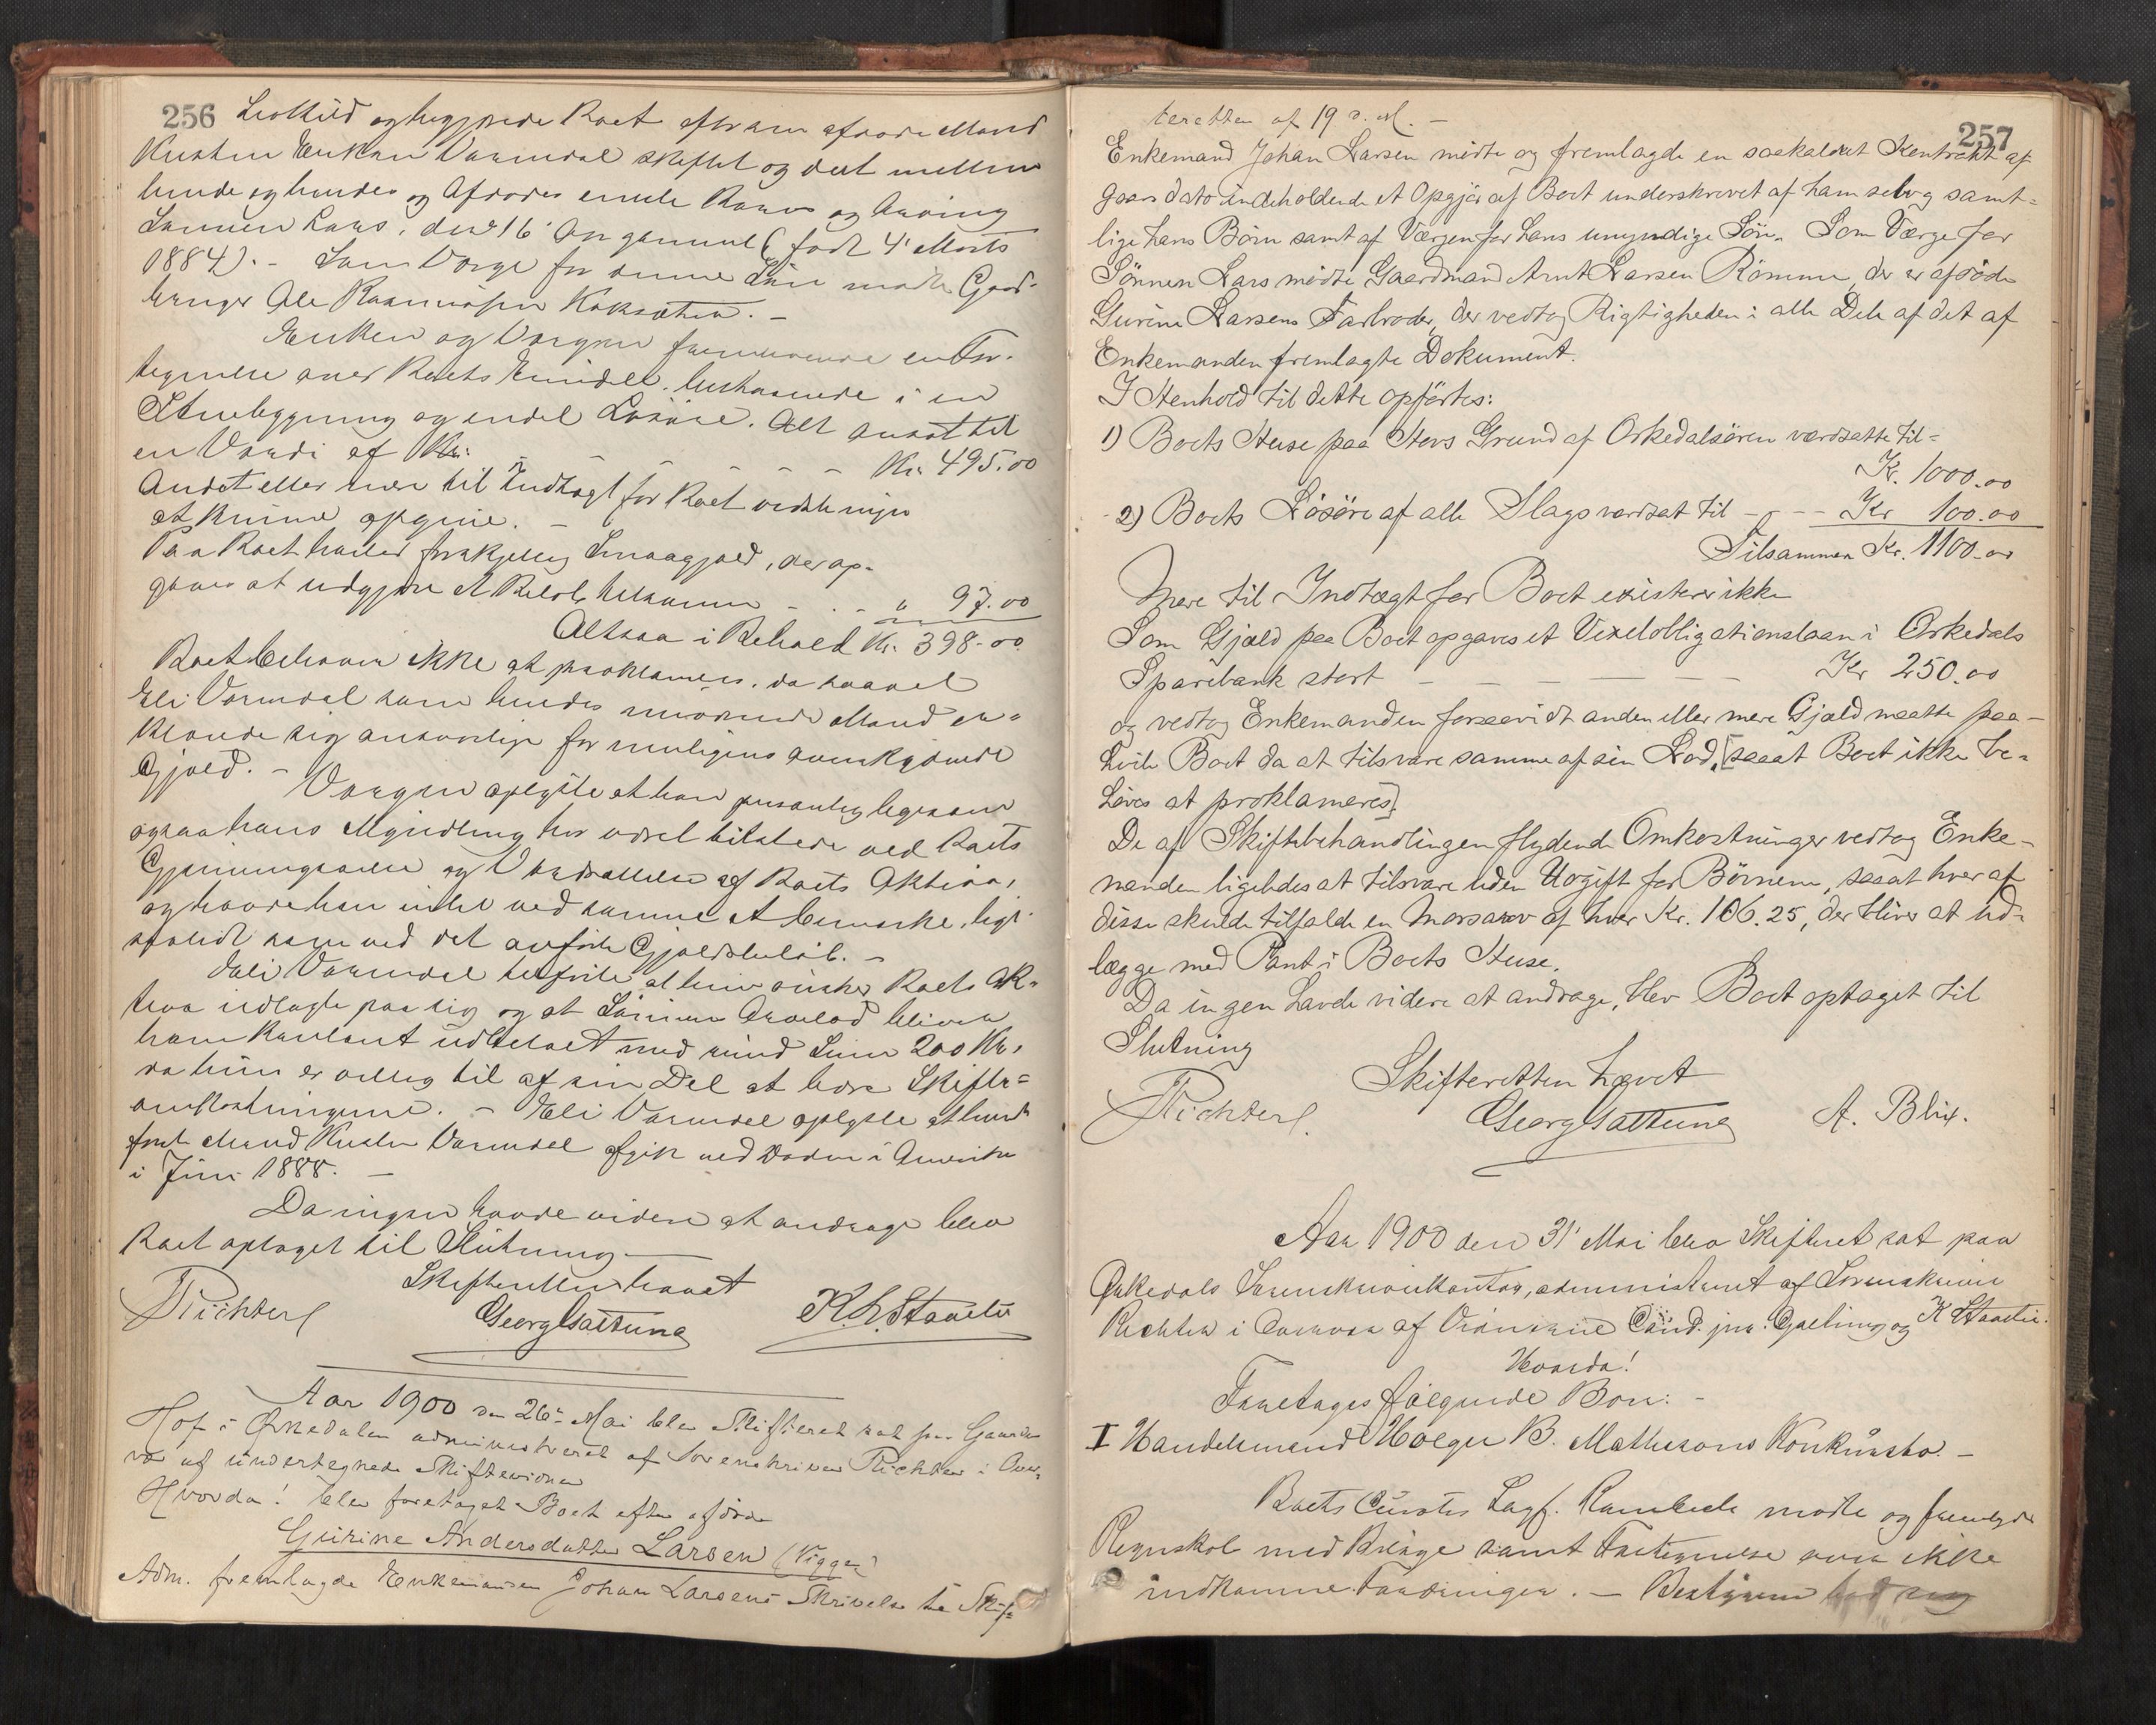 256
Leoküld og begjærede Boet efter sin afdøde Mand
Kristen Eriksen Varmdal skiftet og delt mellem
hende og hendes og Afdødes eneste Barn og Arving
Sønnen Lars, der 16 Aar gammel (född 4' Marts
1884). – Som Værge for denne Sön mødte Gaard-
bruger Ole Rasmussen Koksæter. –
Enken og Værgen fremleverede en For-
tegnelse over Boets Eiendele, bestaaende i en
Stuebygning og endel Lösöre. Alt ansat til
en Værdi af Kr. – – – – – Kr. 495.00
Andet eller mere til Indtægt for Boet vidste ingen
at kunne opgive. –
Paa Boet hviler forskjellig Smaagjæld, der op-
gaves at udgjøre et Beløb tilsammen – . – „ 97.00
Altsaa i Behold Kr. 398.00
Boet behøver ikke at proklameres, da saavel
Eli Varmdal som hendes nuværende Mand er-
klærede sig ansvarlige for muligens overskydende
Gjæld. – Værgen oplyste at han personlig ligesom
ogsaa hans Myndling har været tilstede ved Boets
Gjennemgaaelse og Værdsættelse af Boets Aktiva,
og havde han intet ved samme at bemærke, lige
saalidt som ved det anførte Gjældsbeløb. –
Eli Varmdal tilföiede at hun ønsker Boets Ak-
tiva udlagte paa sig og at Sønnens Arvelod bliver
ham kontant udbetalt med rund Sum 200 Kr.,
da hun er villig til af sin Del at bære Skifte=
omkostningerne. – Eli Varmdal oplyste at hendes
første Mand Kristen Varmdal afgik ved Döden i Amerika
i Juni 1888. –
Da ingen havde videre at andrage blev
Boet optaget til Slutning
Skifteretten hævet
Richter Georg Sattung K. L. Staveli
Aar 1900 den 26de Mai blev Skifteret sat paa Gaarden
Hof i Ørkedalen administreret af Sorenskriver Richter i Over-
vær af undertegnede Skiftevidner
Hvorda! blev foretaget Boet efter afdøde
Gurine Andersdatter Larsen (Vigger)
Adm. fremlagde Enkemanden Johan Larsens Skrivelse til Skif-
257
teretten af 19 d. M. –
Enkemand Johan Larsen mödte og fremlagde en saakaldet Kontrakt af
Gaars dato indeholdende et Opgjör af Boet underskrevet af ham selv og samt=
lige hans Börn samt af Værgen for hans umyndige Sön. Som Værge for
Sönnen Lars mödte Gaardmand Arnt Larsen Römme, der er afdöde
Gurine Larsens Farbroder, der vedtog Rigtigheden i alle Dele af det af
Enkemanden fremlagte Dokument.
I Henhold til dette opförtes:
1) Boets Huse paa Hovs Grund af Orkedalsören værdsatte til =
Kr. 1000.00
2) Boets Lösöre af alle Slags værdsat til – – – Kr 100.00
Tilsammen Kr. 1100.00
Mere til Indtægt for Boet existerer ikke
Som Gjæld paa Boet opgaves et Vexelobligationslaan i Orkedals
Sparebank stort – – – – – Kr 250.00
og vedtog Enkemanden forsaavidt anden eller mere Gjæld maatte paa-
hvile Boet da at tilsvare samme af sin Lod, [saaat Boet ikke be-
höves at proklameres].
De af Skiftebehandlingen flydende Omkostninger vedtog Enke-
manden ligeledes at tilsvare uden Udgift for Börnene, saaat hver af
disse skulde tilfalde en Morsarv af hver Kr. 106.25, der bliver at ud-
lægge med Pant i Boets Huse.
Da ingen havde videre at andrage, blev Boet optaget til
Slutning
Skifteretten hævet
Richter Georg Sattung A. Blix.
Aar 1900 den 31' Mai blev Skifteret sat paa
Ørkedals Sorenskriverkontor, administreret af Sorenskriver
Richter i Overvær af Vidnerne Cand. jur. Gælling og K Staveli.
Hvorda!
Foretages følgende Boer: –
I Handelsmand Holger B. Mathesons Konkursbo. –
Boets Curator Sagf. Rambech mødte og fremlagde
Regnskab med Bilage samt Fortegnelse over ikke
indkomne Fordringer. – Bestyreren